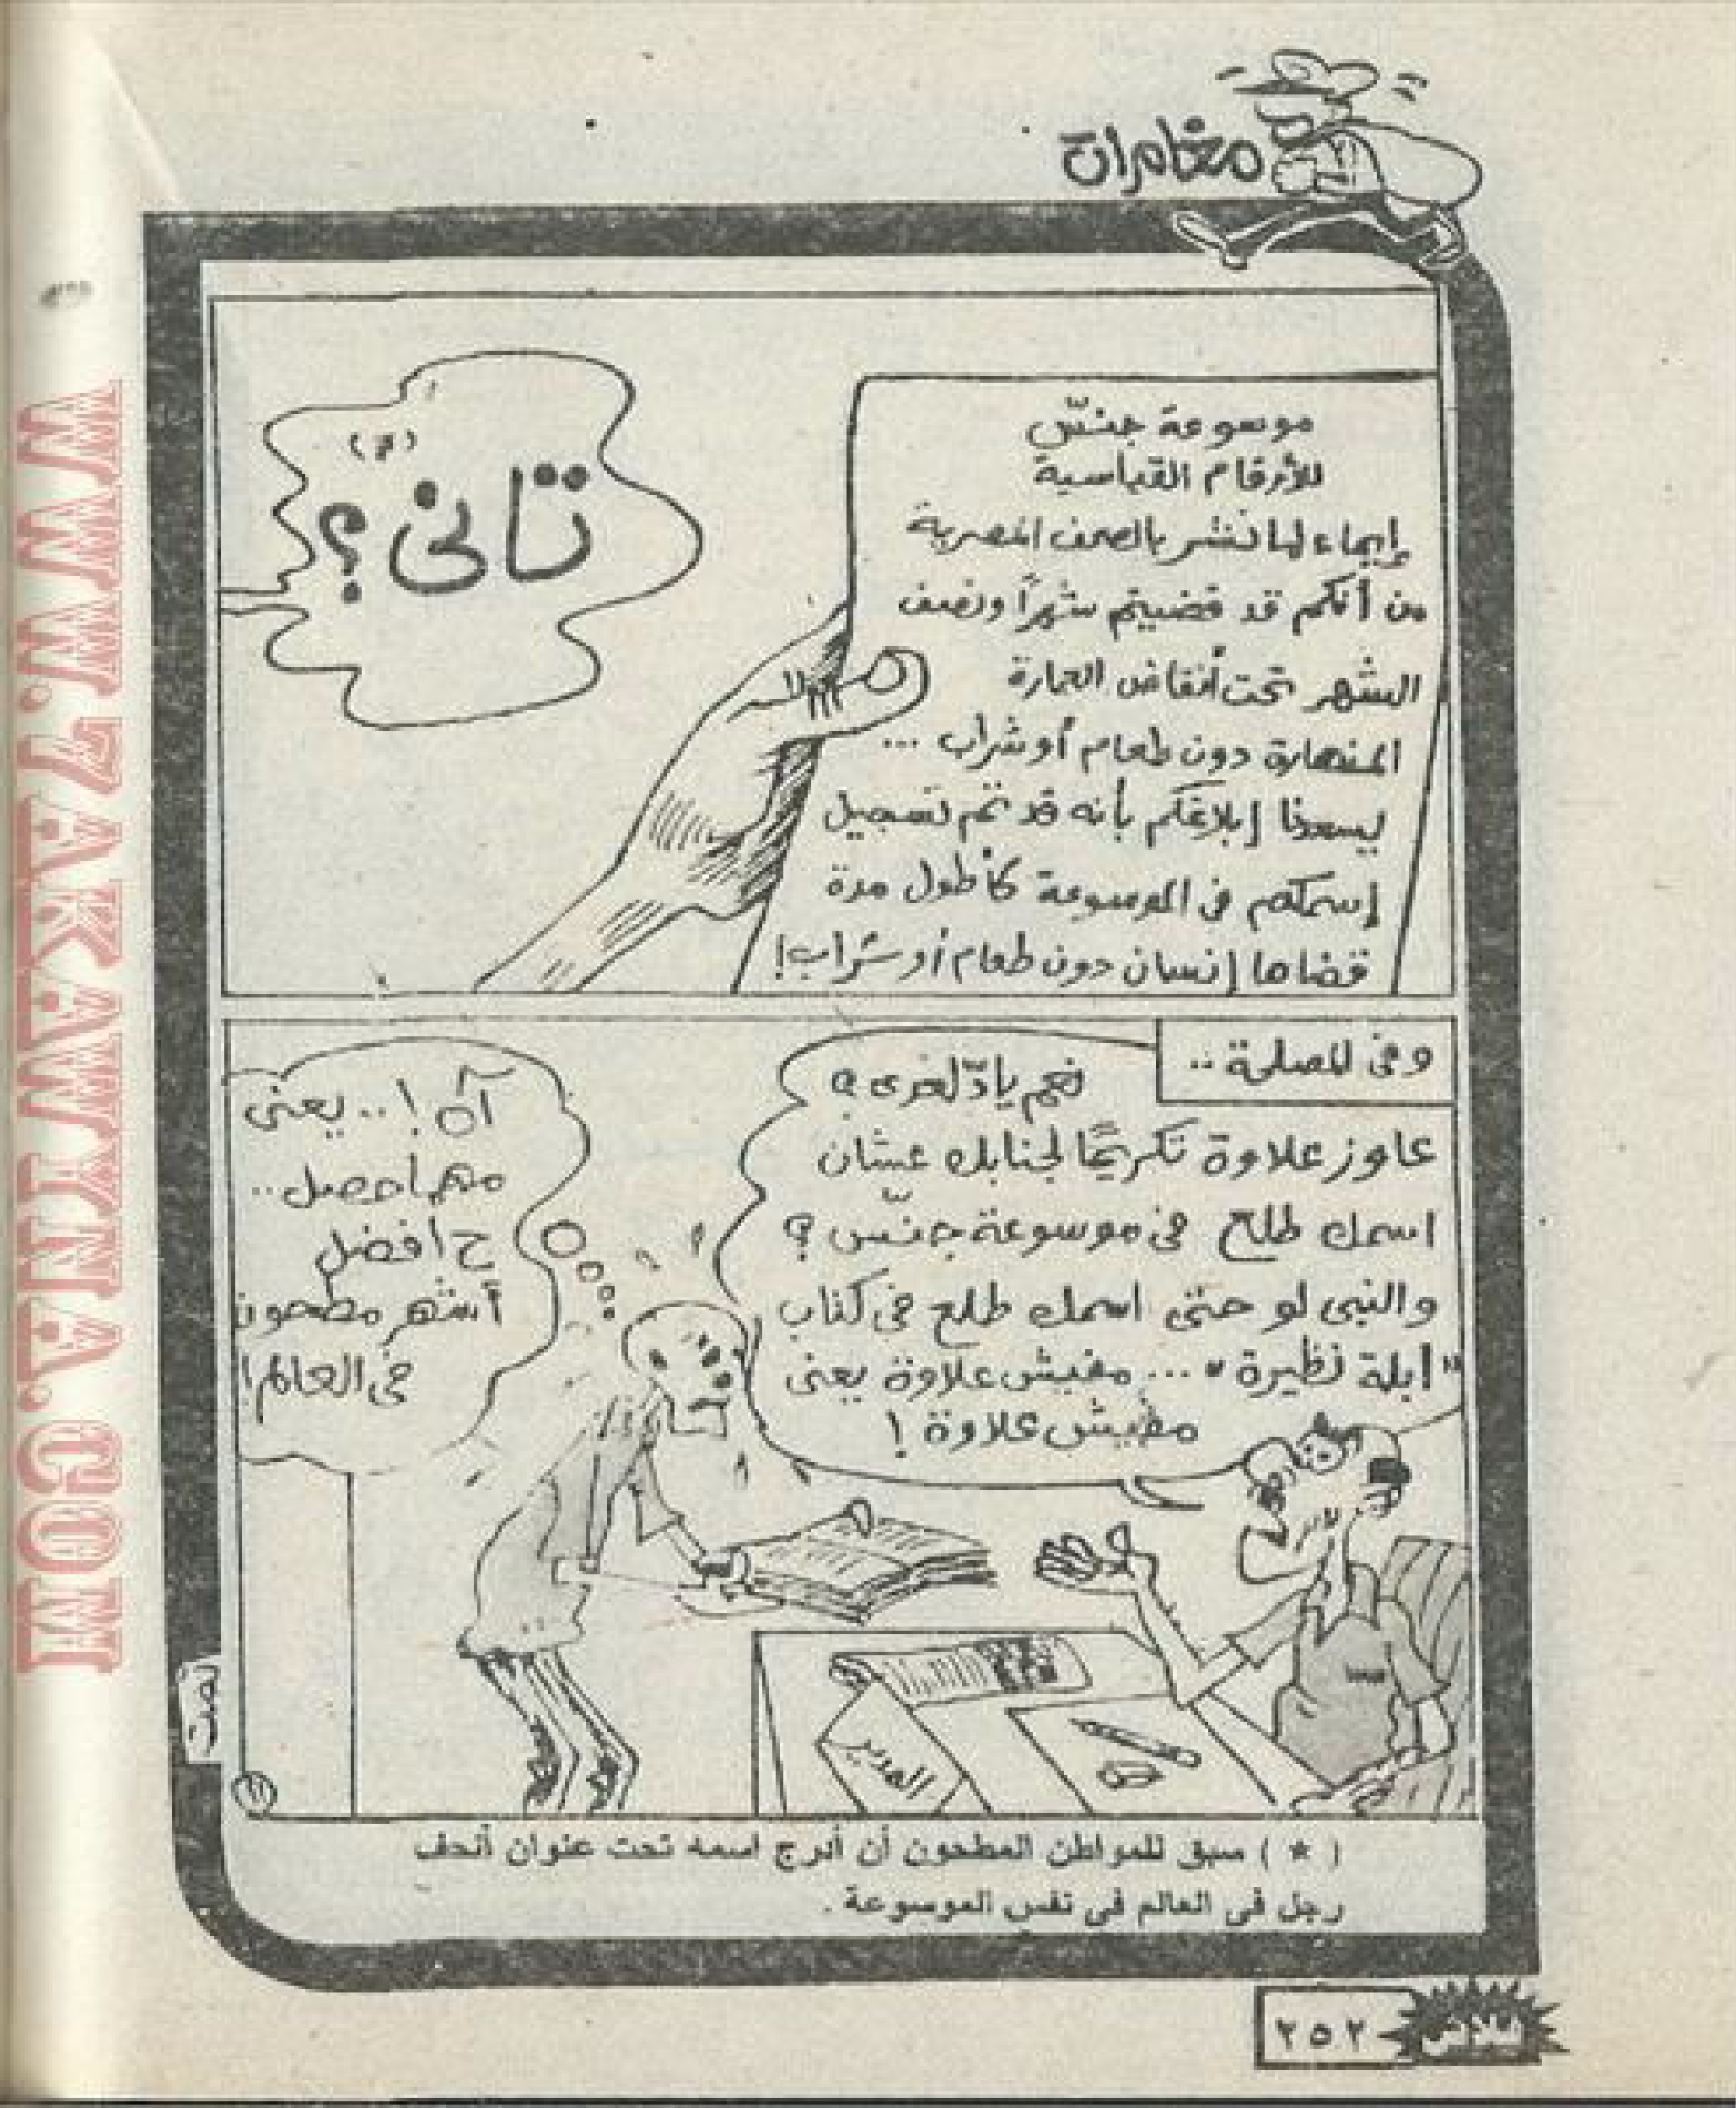 مغامرات
موسوعة جنـّس
للأرقام القياسية
إيماء لما نشر بالصحف المصرية
من أنكم قد قضيتم شهرًا ونصف
الشهر تحت أنقاض العمارة
المنهارة دون طعام أو شراب ...
يسعدنا إبلاغكم بأنه قد تم تسجيل
إسمكم في الموسوعة كأطول مدة
قضاها إنسان دون طعام أو شراب!
(*)
تانى؟
وفى المصلحة ..
نعم يا دّلعدى؟
عاوز علاوة تكريمًا لجنابك عشان
اسمك طلع فى موسوعة جنّس؟
والنبى لو حتى اسمك طلع فى كتاب
"ابلة نظيرة" ... مفيش علاوة يعنى
مفيش علاوة!
آه! .. يعنى
مهما حصل ..
ح افضل
أشهر مطحون
فى العالم!
المدير
تمت
( * ) سبق للمواطن المطحون أن أدرج اسمه تحت عنوان أنحف
رجل فى العالم فى نفس الموسوعة .
فلاش
٢٥٢
WWW.7AKAWTNA.COM